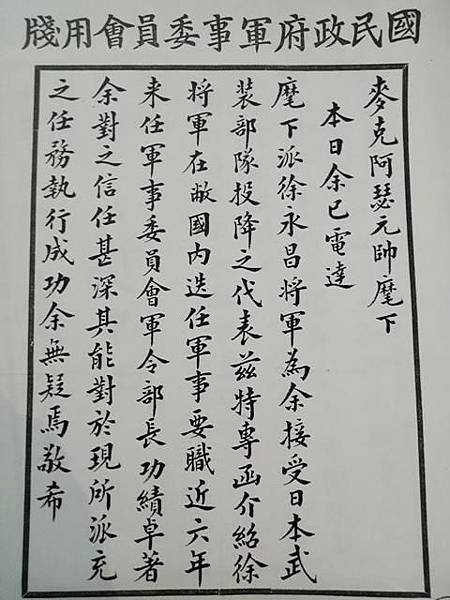 國民政府軍事委員會用牋
麥克阿瑟元帥麾下
本日余已電達
麾下派徐永昌將軍為余接受日本武
裝部隊投降之代表茲特專函介紹徐
將軍在敝國內迭任軍事要職近六年
来任軍事委員會軍令部長功績卓著
余對之信任甚深其能對於現所派充
之任務執行成功余無疑焉敬希